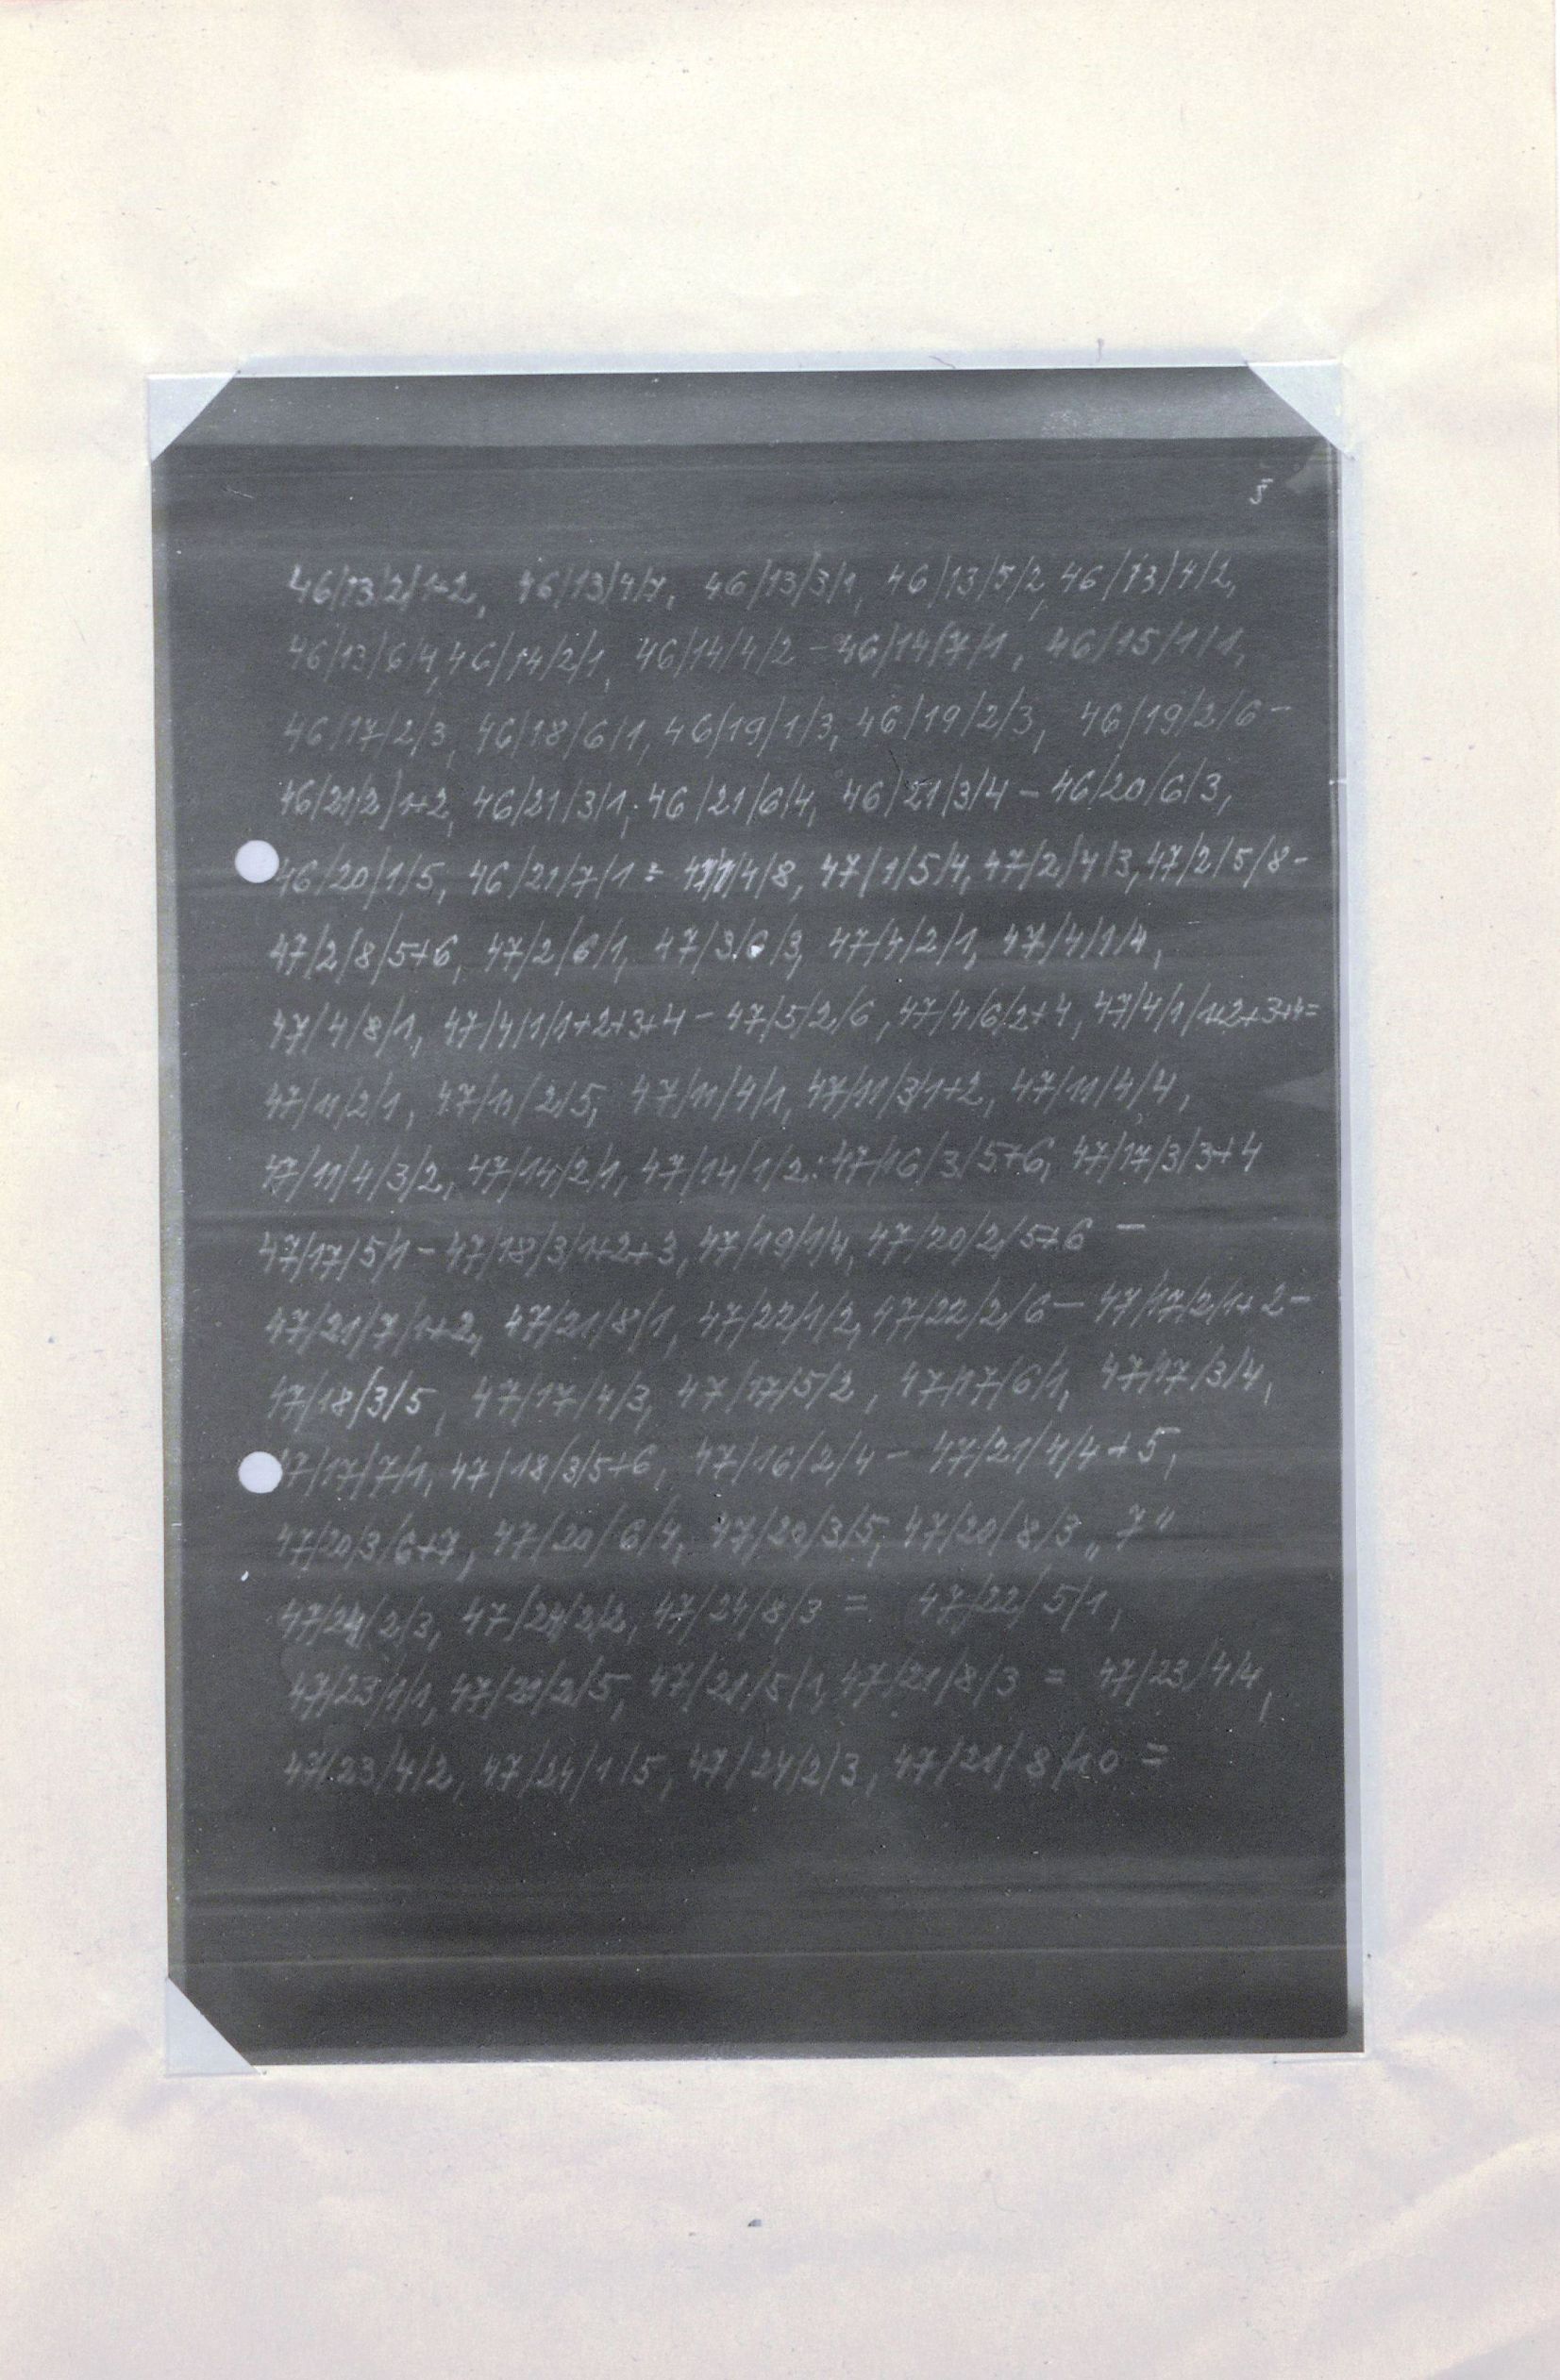 5
46/13/2/1+2, 46/13/4/7, 46/13/3/1, 46/13/5/2, 46/13/4/2,
46/13/6/4, 46/14/2/1, 46/14/4/2 - 46/14/7/1, 46/15/1/1,
46/17/2/3, 46/18/6/1, 46/19/1/3, 46/19/2/3, 46/19/2/6 -
46/21/2/1+2, 46/21/3/1; 46/21/6/4, 46/21/3/4 - 46/20/6/3,
46/20/1/5, 46/21/7/1 = 47/1/4/8, 47/1/5/4, 47/2/4/3, 47/2/5/8 -
47/2/8/5+6, 47/2/6/1, 47/3/6/3, 47/4/2/1, 47/4/1/4,
47/4/8/1, 47/4/1/1+2+3+4 - 47/5/2/6, 47/4/6/2+4, 47/4/1/1+2+3+4 =
47/11/2/1, 47/11/2/5, 47/11/4/1, 47/11/3/1+2, 47/11/4/4,
47/11/4/3/2, 47/14/2/1, 47/14/1/2: 47/16/3/5+6, 47/17/3/3+4
47/17/5/1 - 47/18/3/1+2+3, 47/19/1/4, 47/20/2/5+6 -
47/21/7/1+2, 47/21/8/1, 47/22/1/2, 47/22/2/6 - 47/17/2/1+2 -
47/18/3/5, 47/17/4/3, 47/17/5/2, 47/17/6/1, 47/17/3/4,
47/17/7/1, 47/18/3/5+6, 47/16/2/4 - 47/21/4/4+5,
47/20/3/6+7, 47/20/6/4, 47/20/3/5, 47/20/8/3 „7"
47/24/2/3, 47/24/2/2, 47/24/8/3 = 47/22/5/1,
47/23/1/1, 47/21/5/1, 47/21/8/3 = 47/23/4/4,
47/23/4/2, 47/24/1/5, 47/24/2/3, 47/21/8/10 =